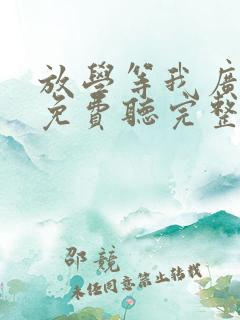 放學等我廣
免費聽完整
邵競
未經同意禁止轉載